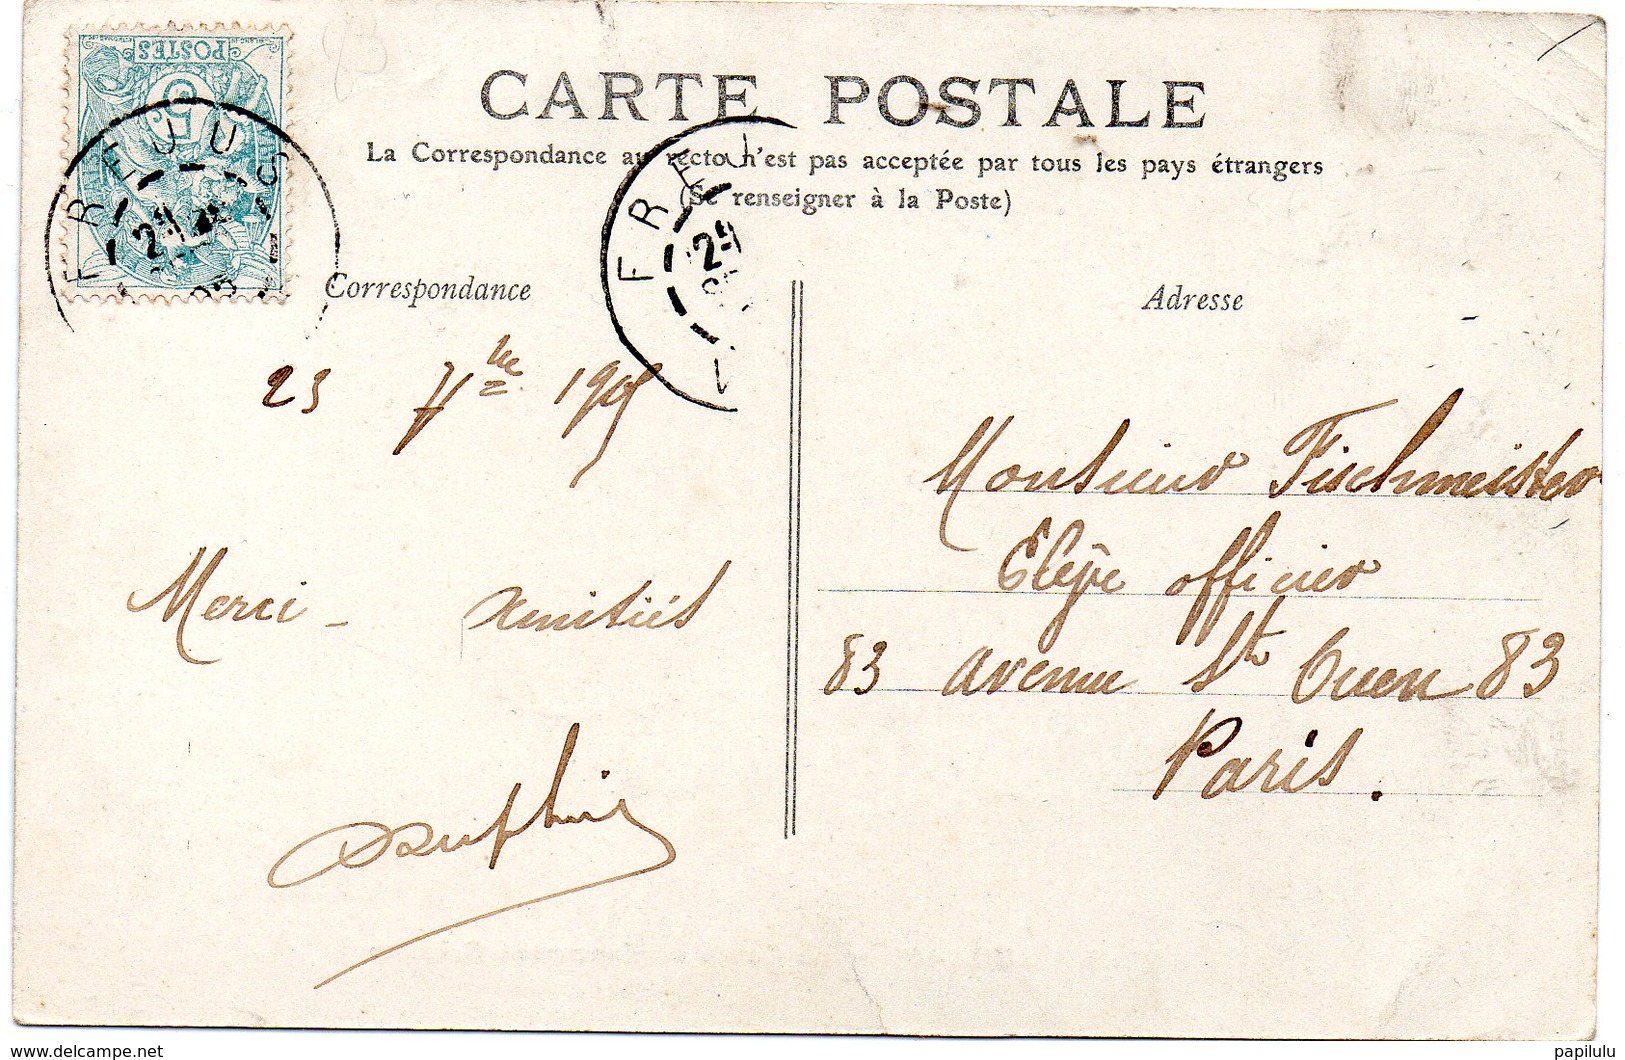 POSTES
5
83
CARTE POSTALE
La Correspondance au recto n'est pas acceptée par tous les pays étrangers
(Se renseigner à la Poste)
FREJUS
FREJ
Correspondance
Adresse
23 7bre 1905
Merci - Amitiés
Dauphin
Monsieur Fischmeister
Elève officier
83 avenue St Ouen 83
Paris.
delcampe.net
papilulu